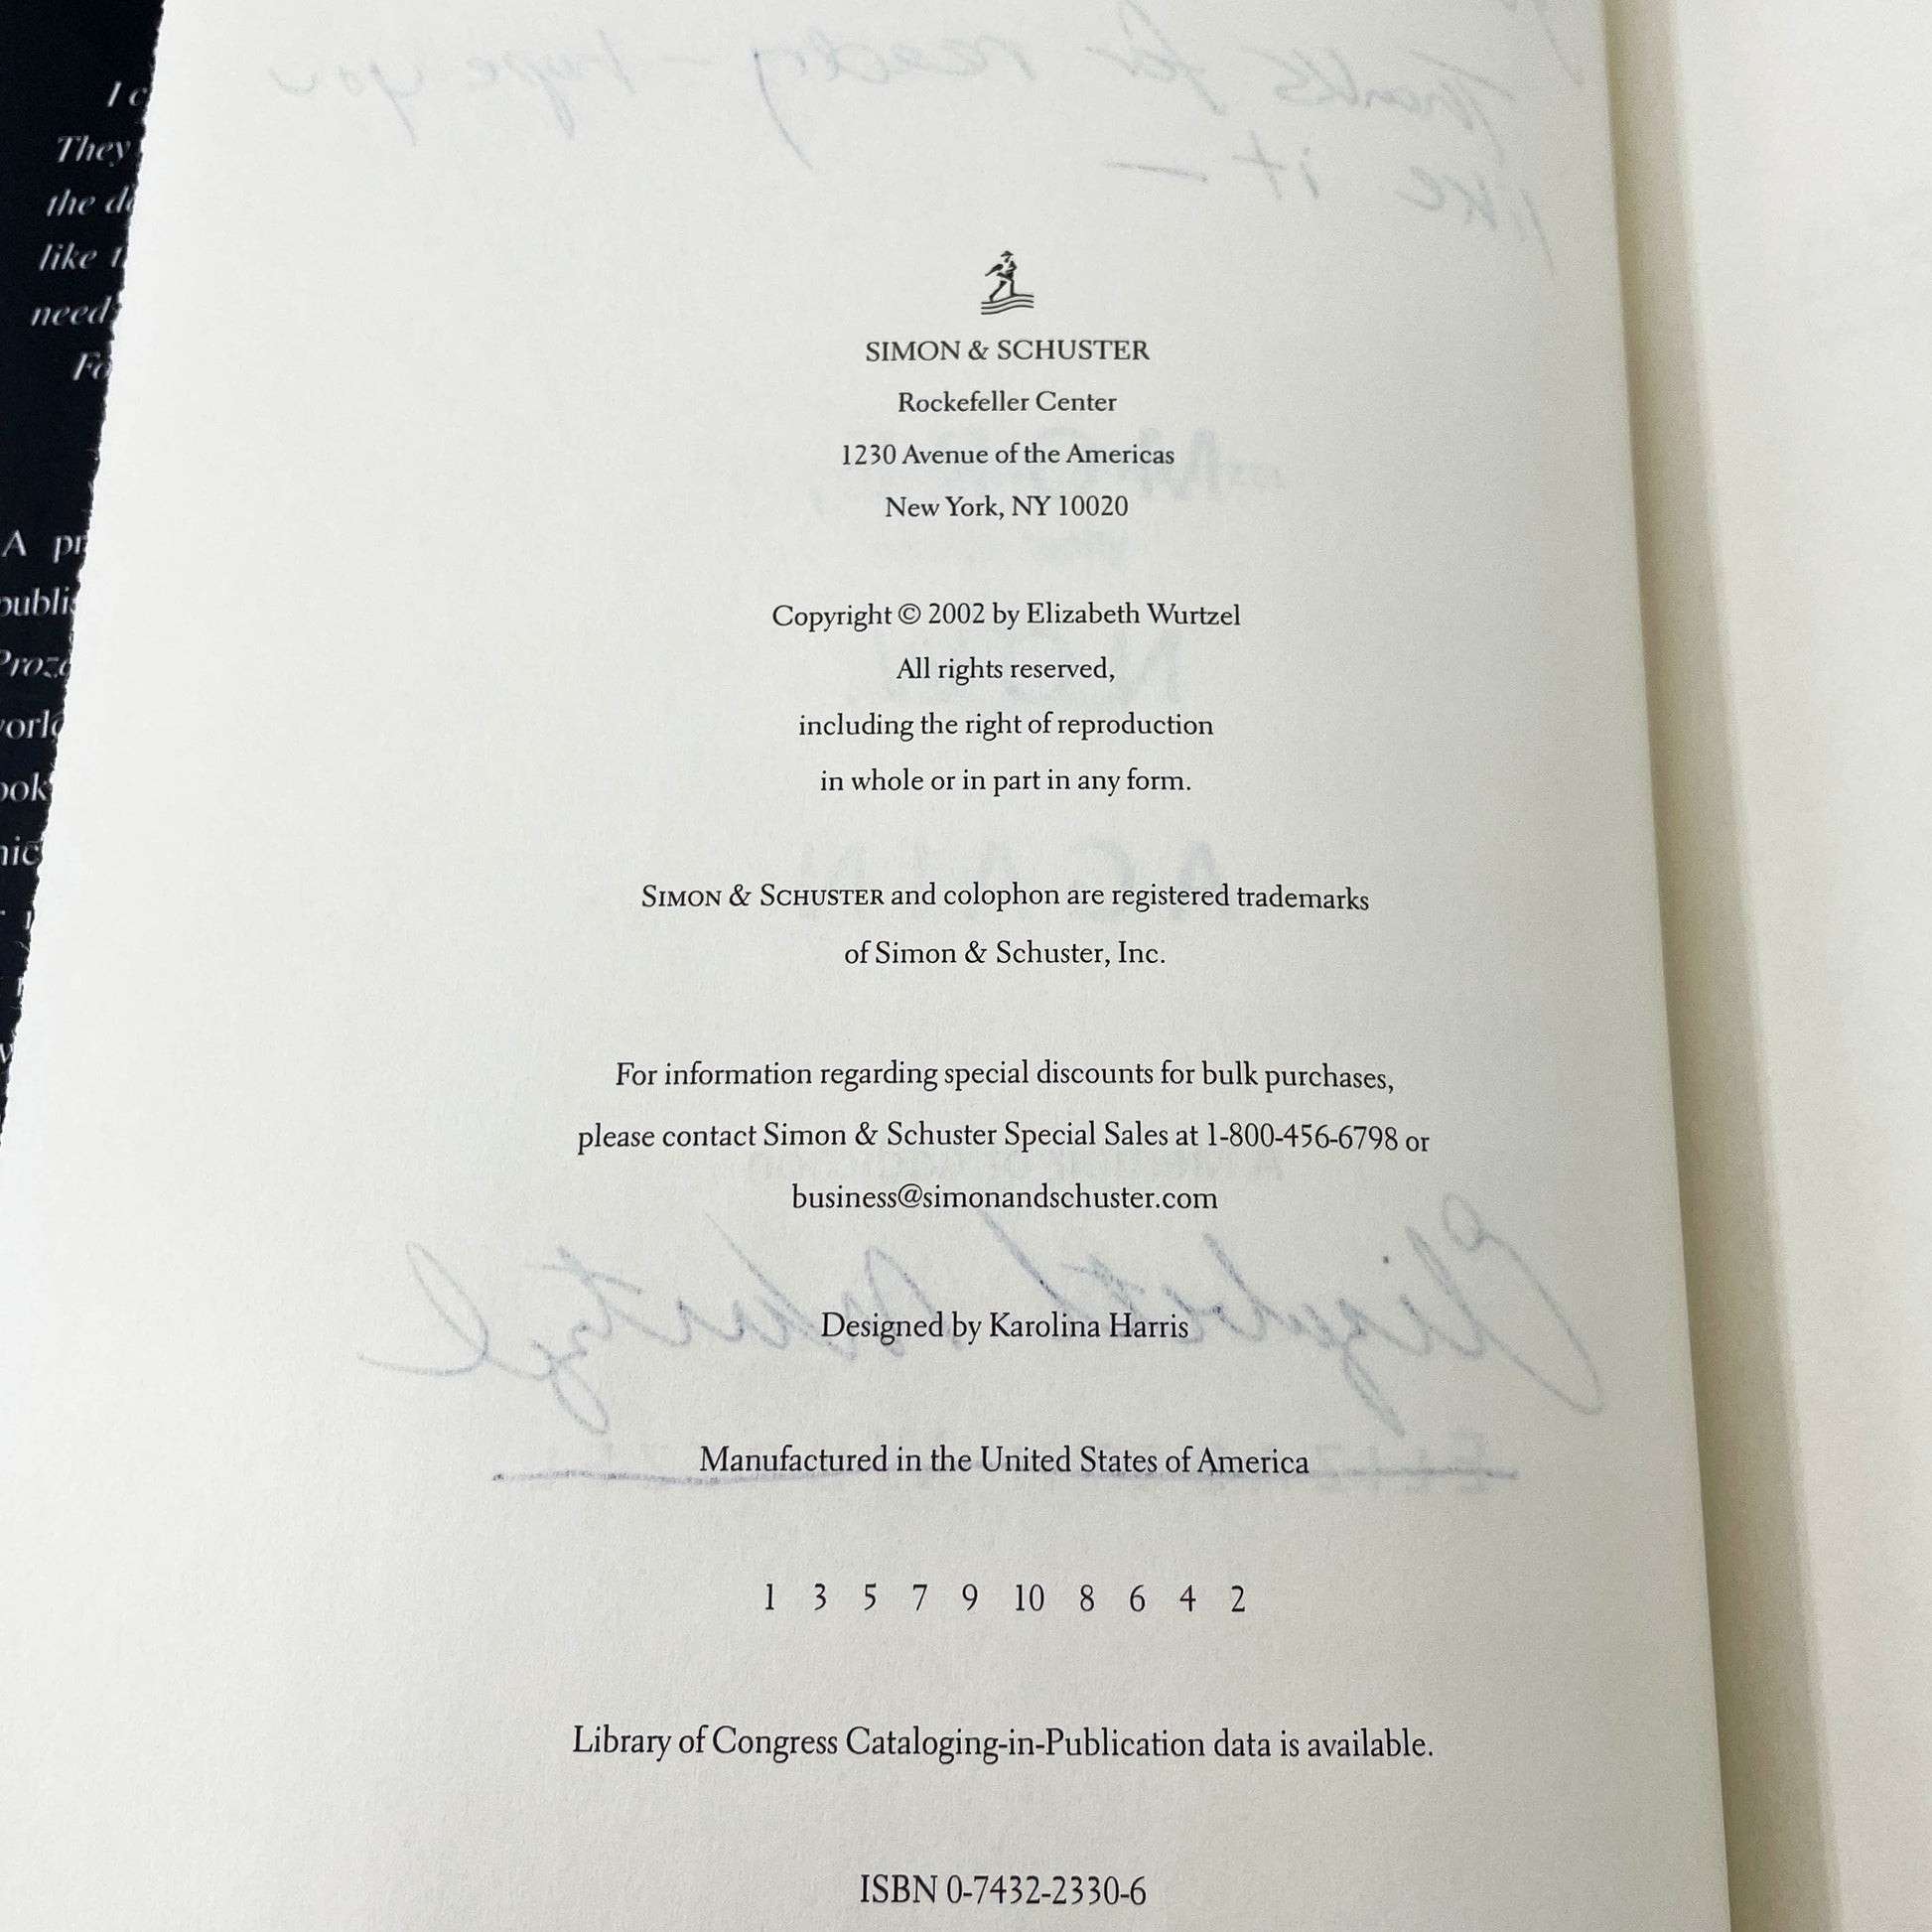 I c
They
the d
like t
need
Fo
A pr
publis
Proza
worl
ook
nic
Thanks for reading – hope you
like it –
SIMON & SCHUSTER
Rockefeller Center
1230 Avenue of the Americas
New York, NY 10020
Copyright © 2002 by Elizabeth Wurtzel
All rights reserved,
including the right of reproduction
in whole or in part in any form.
SIMON & SCHUSTER and colophon are registered trademarks
of Simon & Schuster, Inc.
For information regarding special discounts for bulk purchases,
please contact Simon & Schuster Special Sales at 1-800-456-6798 or
business@simonandschuster.com
Elizabeth Wurtzel
Designed by Karolina Harris
Manufactured in the United States of America
1 3 5 7 9 10 8 6 4 2
Library of Congress Cataloging-in-Publication data is available.
ISBN 0-7432-2330-6